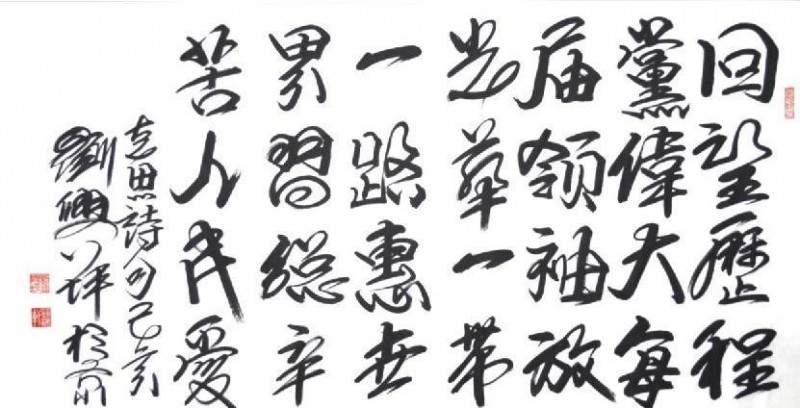 回望歷程
黨偉大每
届領袖放
光華一帶
一路惠世
界習總辛
苦人民愛
思詩句己亥
劉興祥